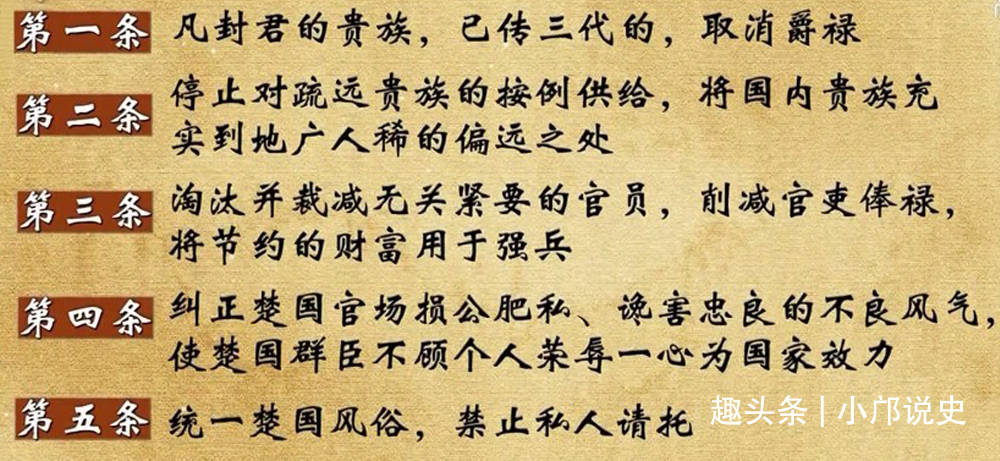 第一条 凡封君的贵族，已传三代的，取消爵禄
第二条 停止对疏远贵族的按例供给，将国内贵族充
实到地广人稀的偏远之处
第三条 淘汰并裁减无关紧要的官员，削减官吏俸禄，
将节约的财富用于强兵
第四条 纠正楚国官场损公肥私、谗害忠良的不良风气，
使楚国群臣不顾个人荣辱一心为国家效力
第五条 统一楚国风俗，禁止私人请托
趣头条 | 小邝说史